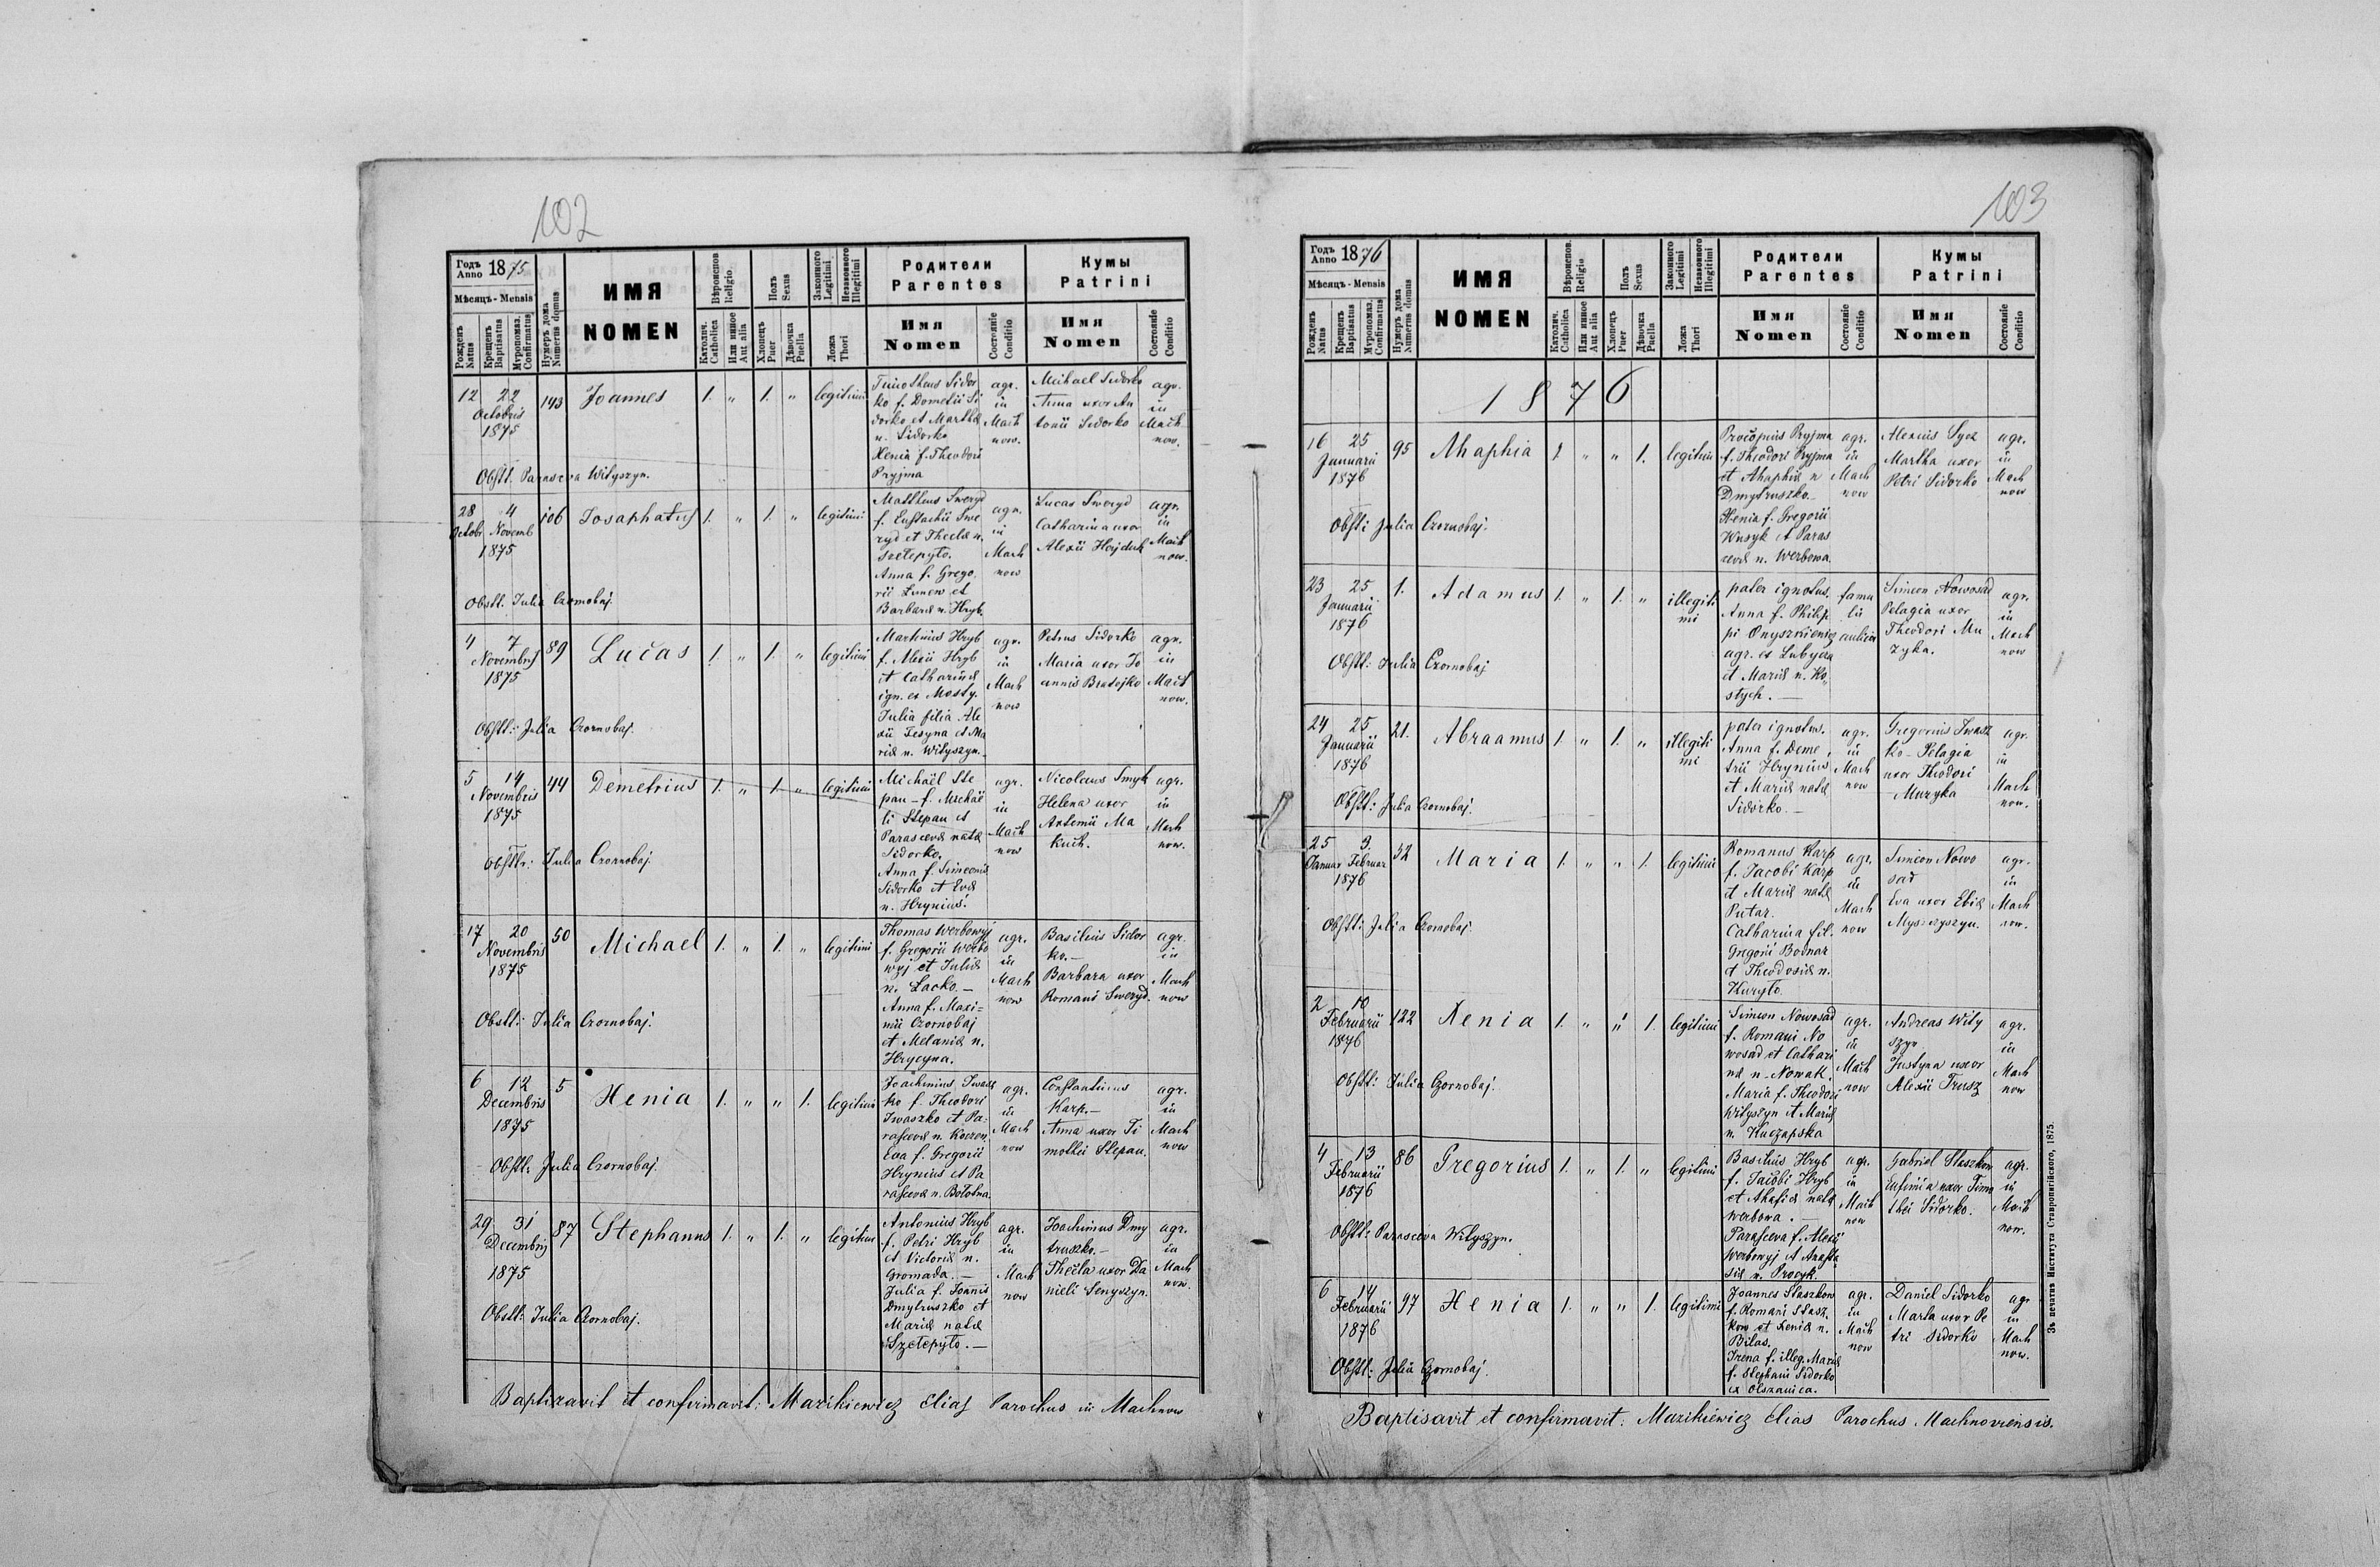 102
Годъ Anno 1875
Мѣсяцъ - Mensis
Рожденъ Natus
Крещенъ Baptisatus
Муропомаз. Confirmatus
Нумеръ дома Numerus domus
ИМЯ
NOMEN
Вѣроиспов. Religio
Католич. Catholica
Или инное Aut alia
Полъ Sexus
Хлопецъ Puer
Дѣвочка Puella
Законного Legitimi
Незаконного Illegitimi
Ложа Thori
Родители
Parentes
Имя
Nomen
Состоянiе Conditio
Кумы
Patrini
Имя
Nomen
Состоянiе Conditio
12 22 Octobris 1875
143
Joannes
1. " 1. " legitimi
Timotheus Sidor
ko f. Dometii Si
dorko et Martha
n. Sidorko
Xenia f. Theodori
Pryjma
agr. in Mach now.
Michael Sidorko
Anna uxor An
tonii Sidorko
agr. in Mach now.
Obstt. Parasceva Wityszyn.
28 Octobr 4 Novemb 1875
106
Josaphatus
1. " 1. " legitimi
Mattheus Sweryd
f. Eustachii Swe
ryd et Thecla n.
Szelepyto.
Anna f. Grego
rii Lunew et
Barbara n. Hryb.
agr. in Mach now
Lucas Sweryd
Catharina uxor
Alexii Hajduk
agr. in Mach now.
Obstt. Julia Czornobaj.
4 7 Novembris 1875
89
Lucas
1. " 1. " legitimi
Martinus Hryb
f. Alexii Hryb
et Catharina
ign. ex Mosty.
Julia filia Ale
xii Lesyna et Ma
ria n. Wityszyn.
agr. in Mach now
Petrus Sidorko
Maria uxor Jo
annis Bratojko
agr. in Mach now.
Obstt: Julia Czornobaj.
5 14 Novembris 1875
44
Demetrius
1. " 1. " legitimi
Michaël Ste
pan f. Michaë
li Stepan et
Parasceva nata
Sidorko.
Anna f. Simeonis
Sidorko et Eva
n. Hrynius.
agr. in Mach now
Nicolaus Smyk
Helena uxor
Artemii Ma
kuch.
agr. in Mach now.
Obsttr: Julia Czornobaj
17 20 Novembris 1875
50
Michael
1. " 1. " legitimi
Thomas Werbowyj
f. Gregorii Werbo
wyj et Julia
n. Lacko. —
Anna f. Maxi=
mii Czornobaj
et Melania n.
Hrycyna.
agr. in Mach now
Basilius Sidor
ko. —
Barbara uxor
Romani Sweryd.
agr. in Mach now
Obstt: Julia Czornobaj.
6 12 Decembris 1875
5
Xenia
1. " " 1. legitimi
Joachimus Iwasz
ko f. Theodori
Iwaszko et Pa-
rasceva n. Korzen
Eva f. Gregorii
Hrynius et Pa
rasceva n. Bolotna
agr. in Mach now
Constantinus
Karp. —
Anna uxor Ti
mothei Stepan.
agr. in Mach now
Obstt: Julia Czornobaj.
29 31 Decembris 1875
87
Stephanus
1. " 1. " legitimi
Antonius Hryb
f. Petri Hryb
et Victoria n.
Gromada. —
Julia f. Joannis
Dmytruszko et
Maria nata
Szelepyto. —
agr. in Mach now
Joachimus Dmy
truszko. —
Thecla uxor Da
nieli Senyszyn.
agr. in Mach now.
Obstt: Julia Czornobaj.
Baptizavit et confirmavit: Mazikiewicz Elias Parochus in Machnow
103
Годъ Anno 1876
Мѣсяцъ - Mensis
Рожденъ Natus
Крещенъ Baptisatus
Муропомаз. Confirmatus
Нумеръ дома Numerus domus
ИМЯ
NOMEN
Вѣроиспов. Religio
Католич. Catholica
Или инное Aut alia
Полъ Sexus
Хлопецъ Puer
Дѣвочка Puella
Законного Legitimi
Незаконного Illegitimi
Ложа Thori
Родители
Parentes
Имя
Nomen
Состоянiе Conditio
Кумы
Patrini
Имя
Nomen
Состоянiе Conditio
1876
16 25 Januarii 1876
95
Ahaphia
1. " " 1. legitimi
Procopius Pryjma
f. Theodori Pryjma
et Ahaphia n
Dmytruszko.
Xenia f. Gregorii
Wusyk et Paras
ceva n. Werbowa.
agr. in Mach now
Alexius Syez
Martha uxor
Petri Sidorko
agr. in Mach now
Obstt: Julia Czornobaj.
23 25 Januarii 1876
1.
Adamus
1. " 1. " illegiti mi
pater ignotus.
Anna f. Philip
pi Onyszkiewicz
agr. ex Lubycza
et Maria n. Ko
stych. —
famu la aulica
Simeon Nowosad
Pelagia uxor
Theodori Mu
zyka.
agr. in Mach now
Obstt: Julia Czornobaj
24 25 Januarii 1876
21.
Abraamus
1. " 1. " illegiti mi
pater ignotus.
Anna f. Deme
trii Hrynius
et Maria nata
Sidorko. —
agr. in Mach now
Gregorius Iwasz
ko — Pelagia
uxor Theodori
Muzyka
agr. in Mach now.
Obstt: Julia Czornobaj.
25 Januar 9. Februar 1876
32
Maria
1. " " 1. legitimi
Romanus Karp
f. Jacobi Karp
et Maria nata
Putar.
Catharina fil.
Gregorii Bodnar
et Theodosia n.
Kuryło.
agr. in Mach now
Simeon Nowo
sad
Eva uxor Elia
Myszczyszyn.
agr. in Mach now.
Obstt: Julia Czornobaj
2 10 Februarii 1876
122
Xenia
1. " " 1. legitimi
Simeon Nowosad
f. Romani No
wosad et Cathari
na n. Nowak.
Maria f. Theodori
Wityszyn et Maria
n. Kuczapska
agr. in Mach now
Andreas Wity
szyn
Justyna uxor
Alexii Trusz
agr. in Mach now
Obstt: Julia Czornobaj.
4 13 Februarii 1876
86
Gregorius
1. " 1. " legitimi
Basilius Hryb
f. Jacobi Hryb
et Ahafia nata
Werbowa. —
Parasceva f. Alexii
Werbowyj et Anasta
sia n. Procyk.
agr. in Mach now
Gabriel Staszkow
Eufimia uxor Timo
thei Sidorko.
agr. in Mach now.
Obstt: Parasceva Wityszyn.
6 14 Februarii 1876
97
Xenia
1. " " 1. legitimi
Joannes Staszkow
f. Romani Stasz
kow et Xenia n.
Bilas.
Irena f. illeg. Maria
f. Stephani Sidorko
ex Olszanica.
agr. in Mach now
Daniel Sidorko
Marta uxor Pe
tri Sidorko
agr in Mach now.
Obstt: Julia Czornobaj.
Baptisavit et confirmavit: Mazikiewicz Elias Parochus Machnoviensis.
Зъ печатнѣ Института Ставропигійского, 1875.